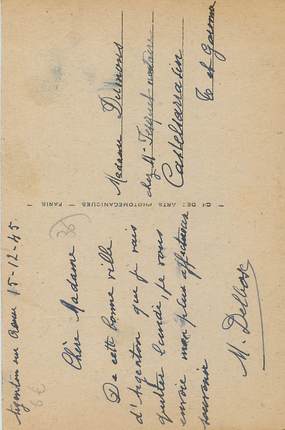 Argenton sur Creuse 15-12-45
Chère Madame
De cette bonne ville
d'Argenton que je vais
quitter lundi, je vous
envoie mon plus affectueux
souvenir
M. Delbos
Cie DES ARTS PHOTOMECANIQUES - PARIS
Madame Dumons
chez Mr notaire
Castelsarrasin
T et Garonne